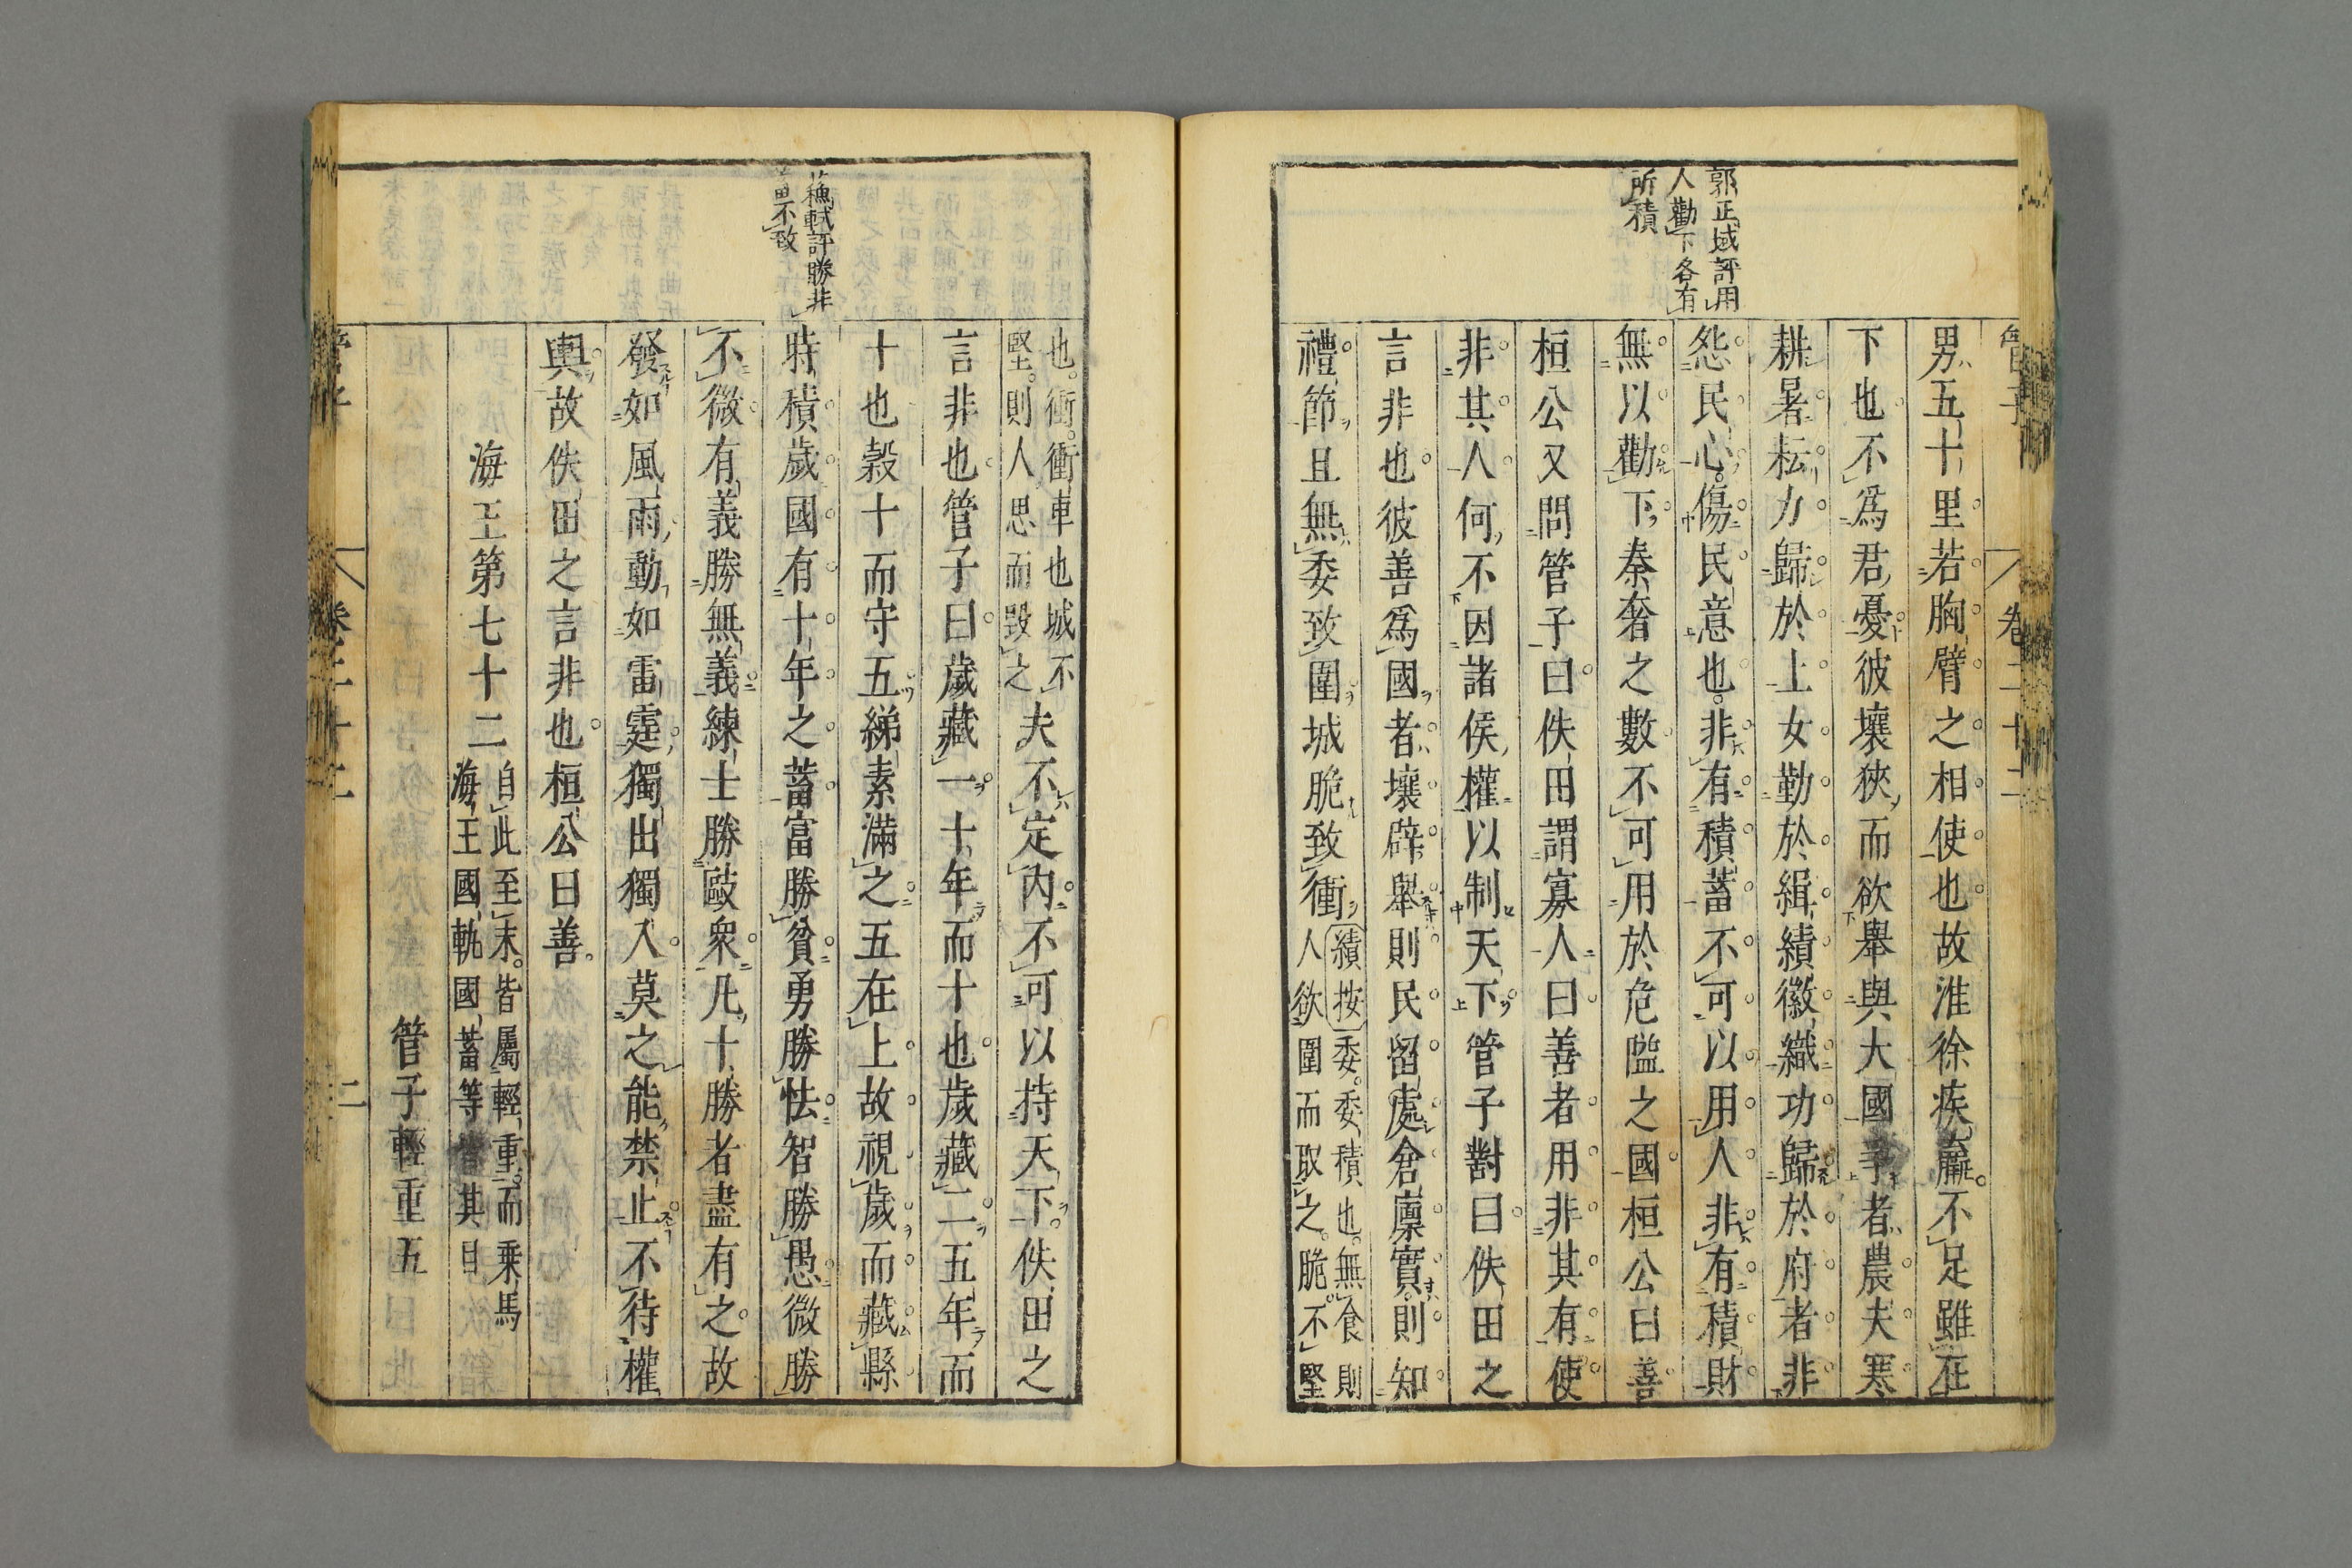 郭正域評用
人勸下各有
所積
管子
卷二十二
男五十里若胸臂之相使也故淮徐疾羸不足雖在
下也不為君憂彼壤狹而欲舉與大國爭者農夫寒
耕暑耘力歸於上女勤於緝績徽織功歸於府者非
怨民心傷民意也非有積蓄不可以用人非有積財
無以勸下秦奢之數不可用於危隘之國桓公曰善
桓公又問管子曰佚田謂寡人曰善者用非其有使
非其人何不因諸侯權以制天下管子對曰佚田之
言非也彼善為國者壤辟舉則民留處倉廩實則知
禮節且無委致圍城脆致衝
續按委委積也無食則
人欲圍而取之脆不堅
蘇軾評勝非
不致
也衝衝車也城不
堅則人思而毀之
夫不定内不可以持天下佚田之
言非也管子曰歲藏一十年而十也歲藏二五年而
十也穀十而守五綈素滿之五在上故視歲而藏縣
時積歲國有十年之蓄富勝貧勇勝怯智勝愚微勝
不微有義勝無義練士勝敺衆凡十勝者盡有之故
發如風雨動如雷霆獨出獨入莫之能禁止不待權
輿故佚田之言非也桓公曰善
海王第七十二
自此至末皆屬輕重而乘馬
海王國軌國蓄等皆其目
管子輕重五
管子
卷二十二
二